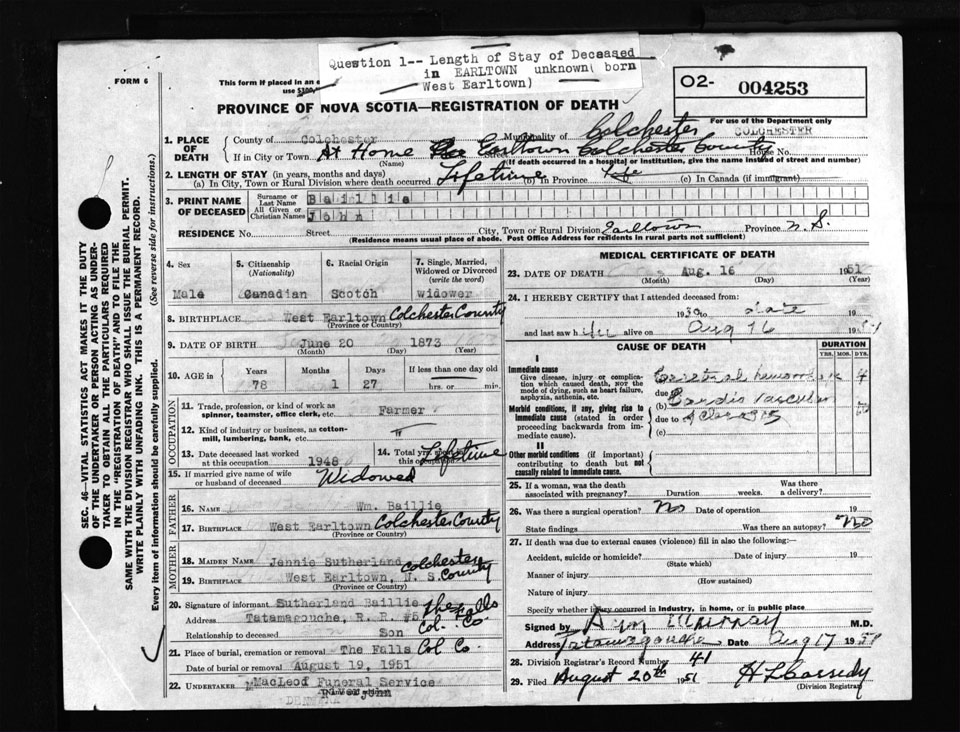 Question 1-- Length of Stay of Deceased
in EARLTOWN unknown( born
West Earltown)
FORM 6
This form if placed in an e
O2- 004253
PROVINCE OF NOVA SCOTIA—REGISTRATION OF DEATH
For use of the Department only
COLCHESTER
1. PLACE OF DEATH
County of Colchester Municipality of Colchester
If in City or Town At Home Street Earltown Colchester County House No.
(Name) (If death occurred in a hospital or institution, give the name instead of street and number)
2. LENGTH OF STAY (in years, months and days)
(a) In City, Town or Rural Division where death occurred Lifetime (b) In Province Life (c) In Canada (if immigrant)
3. PRINT NAME OF DECEASED
Surname or Last Name Baillie
All Given or Christian Names John
RESIDENCE No. Street City, Town or Rural Division Earltown Province N.S.
(Residence means usual place of abode. Post Office Address for residents in rural parts not sufficient)
4. Sex Male
5. Citizenship (Nationality) Canadian
6. Racial Origin Scotch
7. Single, Married, Widowed or Divorced (write the word) widower
8. BIRTHPLACE West Earltown Colchester County
(Province or Country)
9. DATE OF BIRTH June 20 1873
(Month) (Day) (Year)
10. AGE in Years Months Days If less than one day
78 1 27 hrs. or min.
OCCUPATION
11. Trade, profession, or kind of work as spinner, teamster, office clerk, etc. Farmer
12. Kind of industry or business, as cotton-mill, lumbering, bank, etc. "
13. Date deceased last worked at this occupation 1948
14. Total yrs. spent in this occupation Lifetime
15. If married give name of wife or husband of deceased Widowed
FATHER
16. Name Wm. Baillie
17. Birthplace West Earltown Colchester County
(Province or Country)
MOTHER
18. Maiden Name Jennie Sutherland
19. Birthplace West Earltown, N. S. Colchester County
(Province or Country)
20. Signature of informant Sutherland Baillie
Address Tatamagouche, R. R. #5 The Falls Col. Co.
Relationship to deceased Son
21. Place of burial, cremation or removal The Falls Col Co.
Date of burial or removal August 19, 1951
22. UNDERTAKER MacLeod Funeral Service
(Name and address)
MEDICAL CERTIFICATE OF DEATH
23. DATE OF DEATH Aug. 16 1951
(Month) (Day) (Year)
24. I HEREBY CERTIFY that I attended deceased from
1930 to date
and last saw h alive on Aug 16 19
CAUSE OF DEATH DURATION
YRS. MOS. DYS.
I
Immediate cause
Give disease, injury or complication which caused death, nor the mode of dying, such as heart failure, asphyxia, asthenia, etc.
due to
Morbid conditions, if any, giving rise to immediate cause (stated in order proceeding backwards from immediate cause).
(b) Cardio Vascular
due to
(c)
II
Other morbid conditions (if important) contributing to death but not causally related to immediate cause.
25. If a woman, was the death associated with pregnancy? Duration weeks. Was there a delivery?
26. Was there a surgical operation? No Date of operation 19
State findings Was there an autopsy? No
27. If death was due to external causes (violence) fill in also the following:—
Accident, suicide or homicide? Date of injury 19
(State which)
Manner of injury
(How sustained)
Nature of injury
Specify whether injury occurred in industry, in home, or in public place
Signed by M.D.
Address Tatamagouche Date Aug 17 19
28. Division Registrar's Record Number 41
29. Filed August 20th 1951 H L Cassidy
(Division Registrar)
SEC. 46—VITAL STATISTICS ACT MAKES IT THE DUTY
OF THE UNDERTAKER OR PERSON ACTING AS UNDER-
TAKER TO OBTAIN ALL THE PARTICULARS REQUIRED
IN THE "REGISTRATION OF DEATH" AND TO FILE THE
SAME WITH THE DIVISION REGISTRAR WHO SHALL ISSUE THE BURIAL PERMIT.
WRITE PLAINLY WITH UNFADING INK. THIS IS A PERMANENT RECORD.
Every item of information should be carefully supplied. (See reverse side for instructions.)